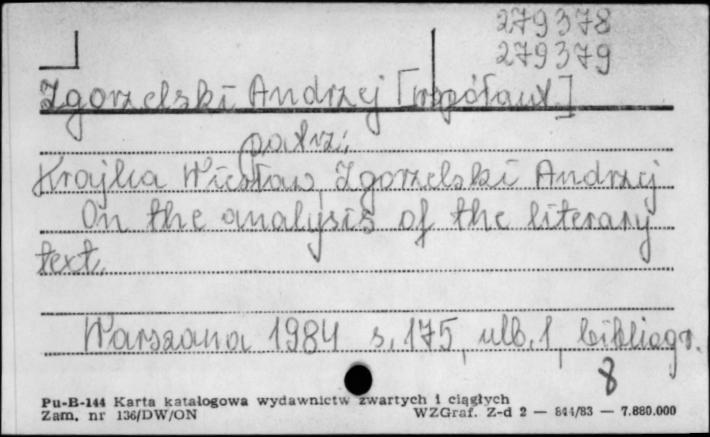 279378
279379
Zgorzelski Andrzej [współaut]
patrz:
Krajka Wiesław, Zgorzelski Andrzej
On the analysis of the literary
text.
Warszawa 1984 s. 175, nlb. 1, bibliogr.
8
Pu-B-144 Karta katalogowa wydawnictw zwartych i ciągłych
Zam. nr 136/DW/ON WZGraf. Z-d 2 — 844/83 — 7.880.000